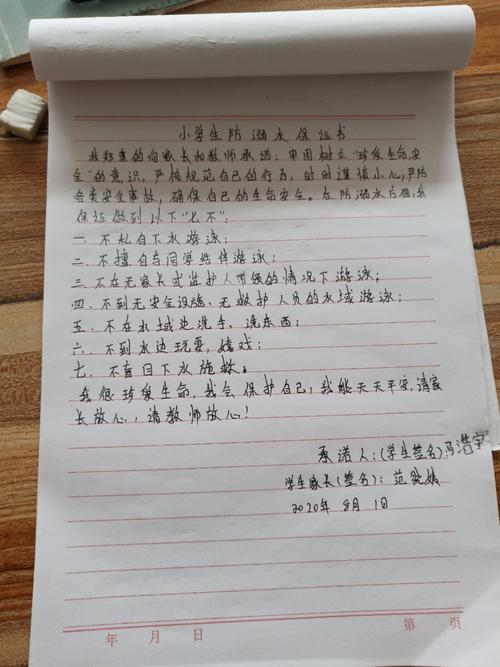 小学生防溺水保证书
我郑重的向家长和教师承诺：牢固树立“珍爱生命，安
全”的意识，严格规范自己的行为，时时谨慎小心，严防
各类安全事故，确保自己的生命安全。在防溺水方面，我
保证做到以下“七不”：
一. 不私自下水游泳；
二. 不擅自与同学结伴游泳；
三. 不在无家长或监护人带领的情况下游泳；
四. 不到无安全设施、无救护人员的水域游泳；
五. 不在水域边洗手、洗东西；
六. 不到水边玩耍，嬉戏；
七. 不盲目下水施救。
我很珍爱生命，我会保护自己，我能天天平安，请家
长放心，请教师放心！
承诺人：(学生签名)冯浩宇
学生家长(签名)：范
2020年8月1日
年 月 日
第 页